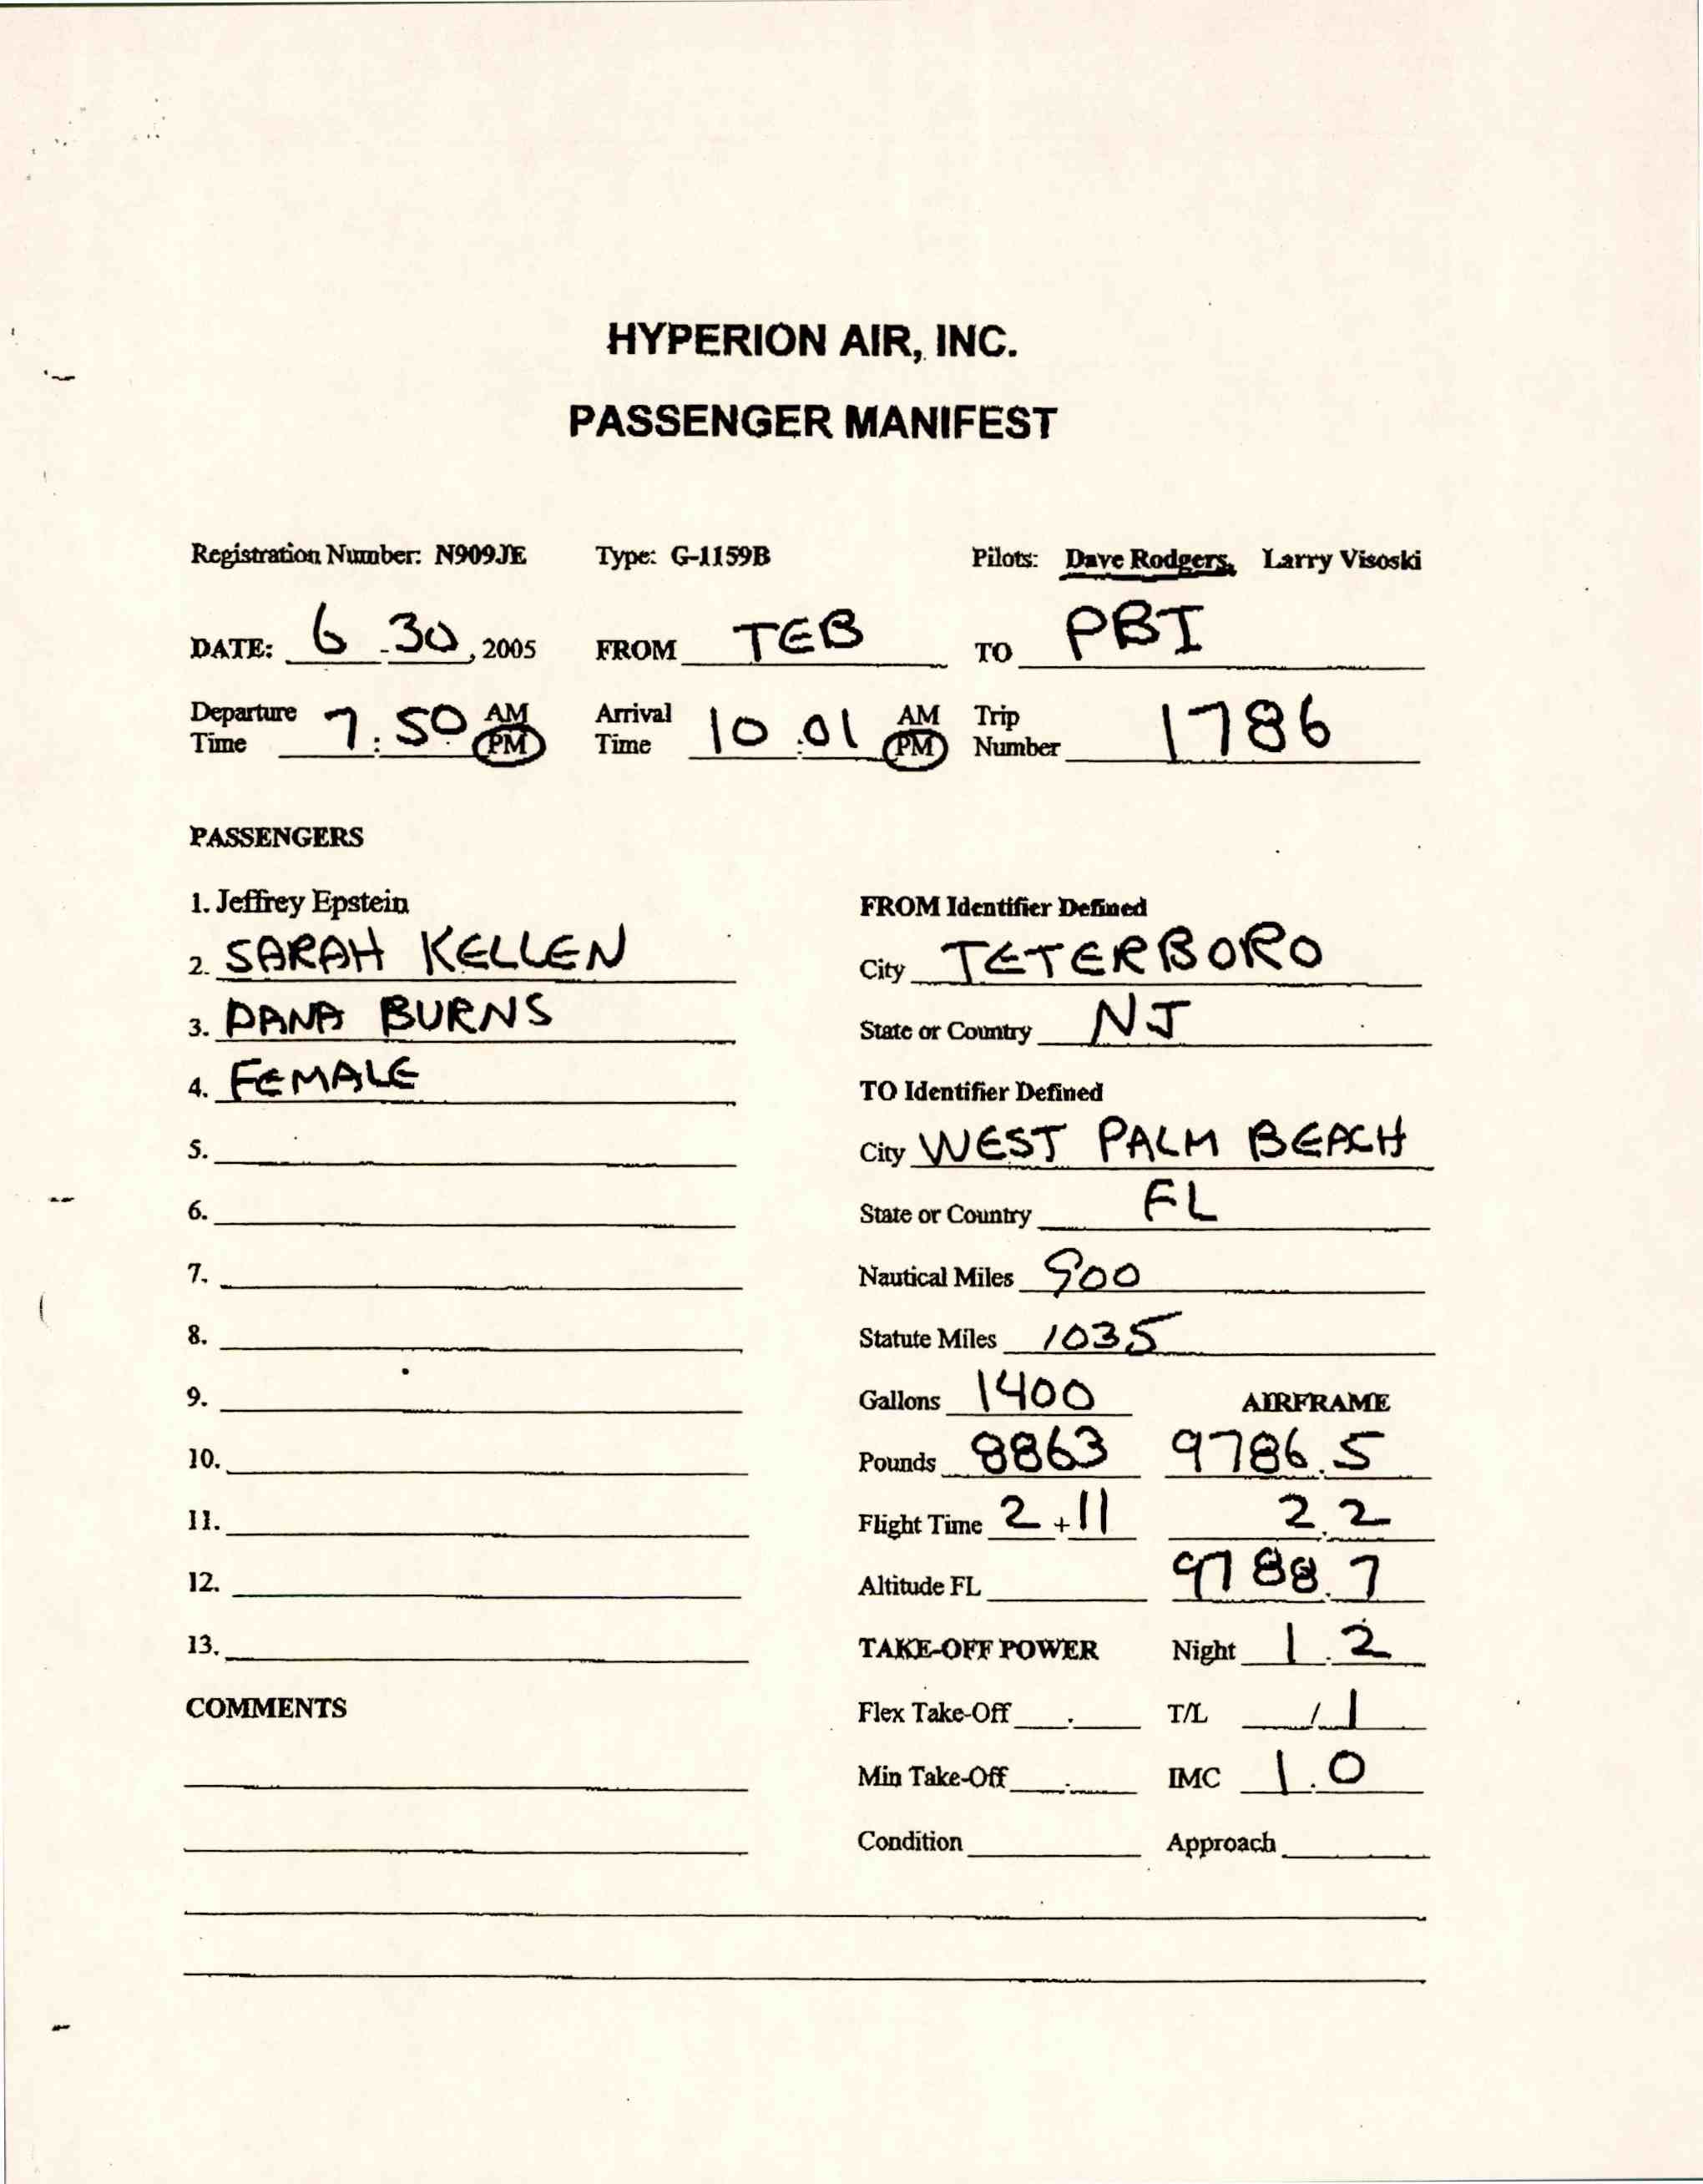 HYPERION AIR, INC.
PASSENGER MANIFEST
Registration Number: N909JE Type: G-1159B Pilots: Dave Rodgers, Larry Visoski
DATE: 6-30, 2005 FROM TEB TO PBI
Departure Time 7:50 AM PM Arrival Time 10:01 AM PM Trip Number 1786
PASSENGERS
1. Jeffrey Epstein
2. SARAH KELLEN
3. DANA BURNS
4. FEMALE
5.
6.
7.
8.
9.
10.
11.
12.
13.
COMMENTS
FROM Identifier Defined
City TETERBORO
State or Country NJ
TO Identifier Defined
City WEST PALM BEACH
State or Country FL
Nautical Miles 900
Statute Miles 1035
Gallons 1400 AIRFRAME
Pounds 8863 9786.5
Flight Time 2+11 2.2
Altitude FL 9788.7
TAKE-OFF POWER Night 1.2
Flex Take-Off . T/L /1
Min Take-Off . IMC 1.0
Condition Approach